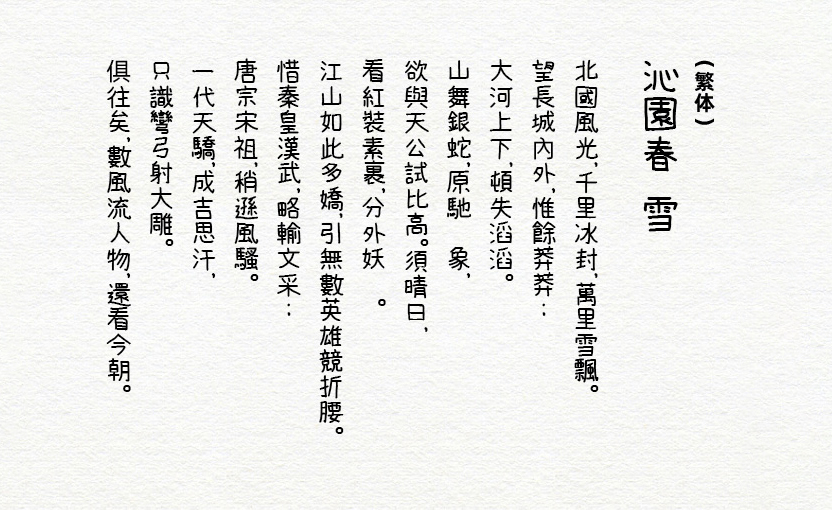 (繁体)
沁園春 雪
北國風光,千里冰封,萬里雪飄。
望長城內外,惟餘莽莽;
大河上下,頓失滔滔。
山舞銀蛇,原馳 象,
欲與天公試比高。須晴日,
看紅裝素裹,分外妖 。
江山如此多嬌,引無數英雄競折腰。
惜秦皇漢武,略輸文采;
唐宗宋祖,稍遜風騷。
一代天驕,成吉思汗,
只識彎弓射大雕。
俱往矣,數風流人物,還看今朝。